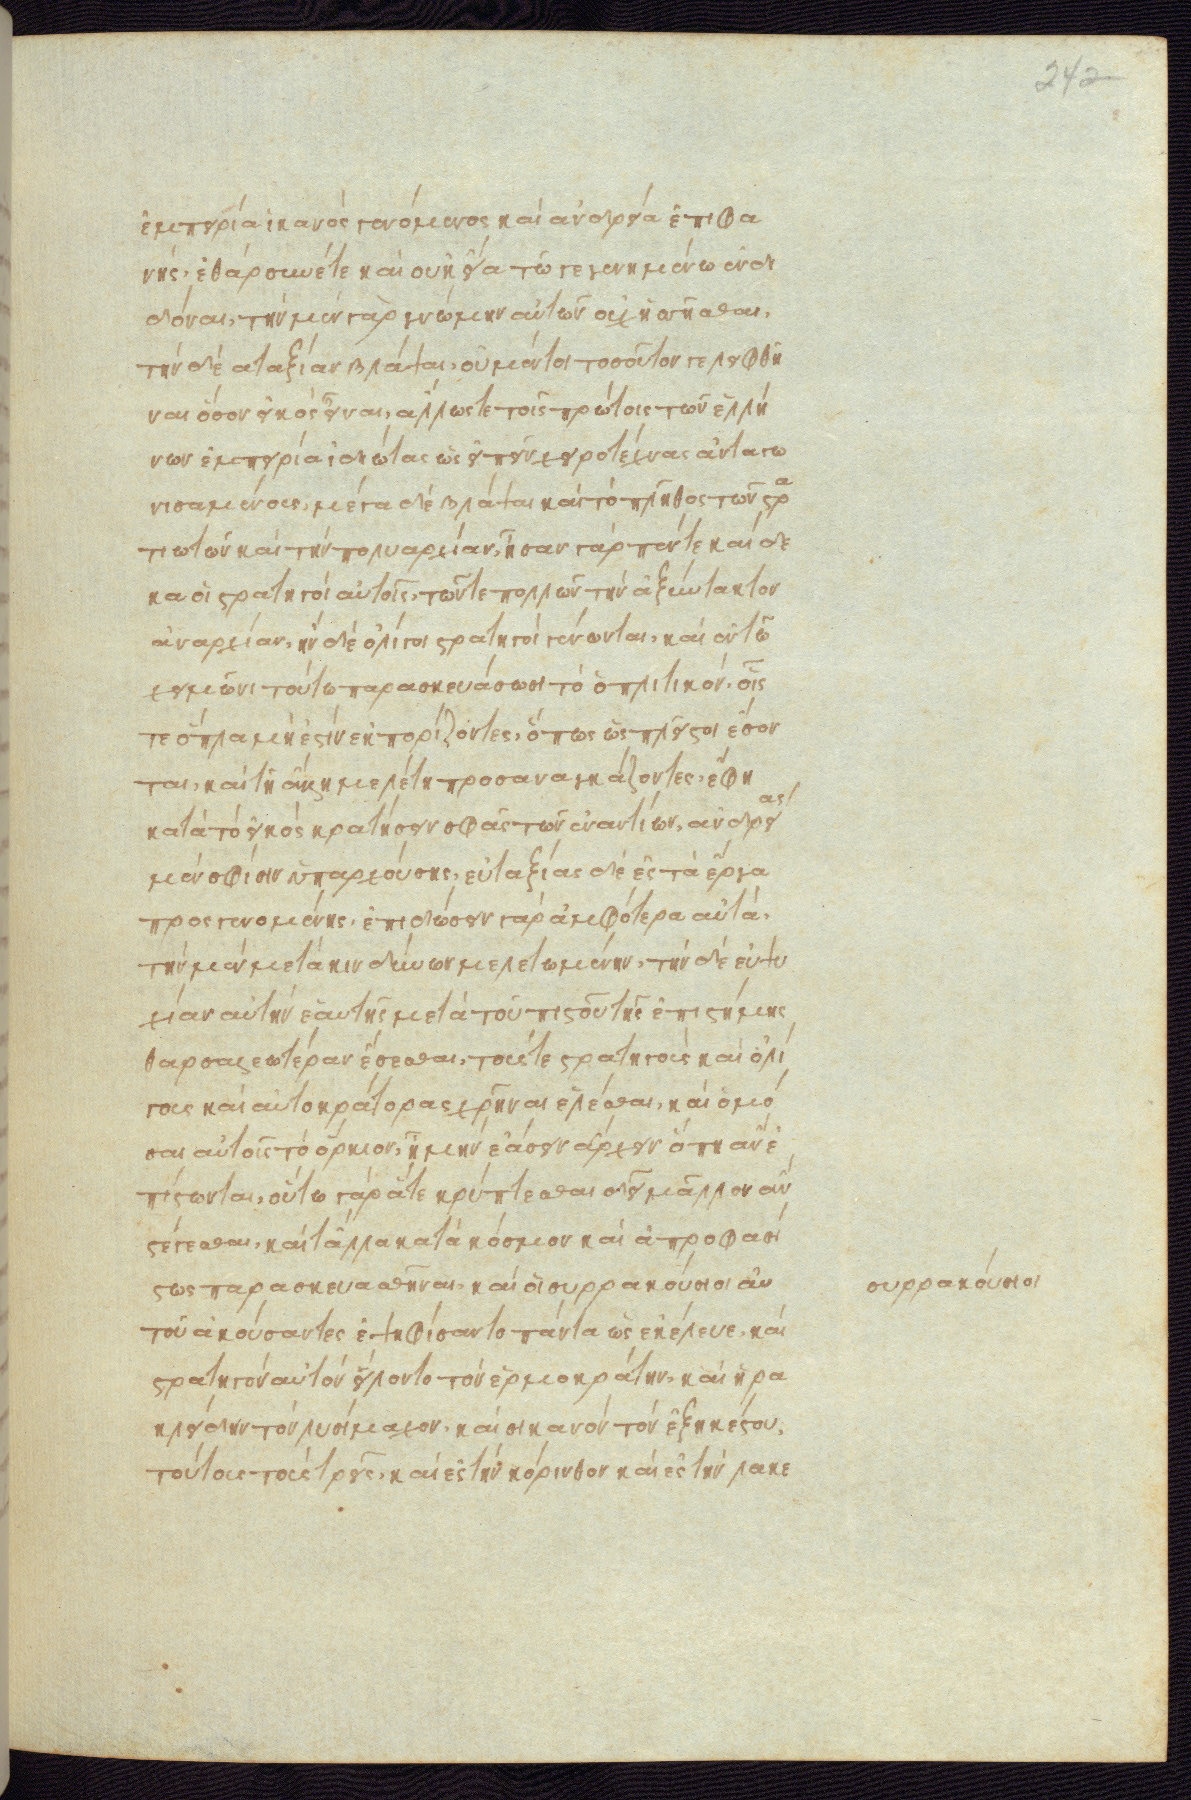 242
ἐμπειρία ἱκανὸς γενόμενος καὶ ἀνδρεία ἐπιφα
νὴς, ἐθάρσυνέ τε καὶ οὐκ εἴα τῶ γεγενημένω ἐνδι
δόναι, τὴν μὲν γὰρ γνώμην αὐτῶν οὐχ ἡσσῆσθαι,
τὴν δὲ αταξίαν βλάψαι, οὐ μέντοι τοσοῦτον γε λειφθῆ
ναι ὅσον εἰκὸς εἶναι, ἄλλως τε τοῖς πρώτοις τῶν ἑλλή
νων ἐμπειρία ἰδιώτας ὡς εἰπεῖν χειροτέχνας ἀνταγω
νισαμένοις, μέγα δὲ βλάψαι καὶ τὸ πλῆθος τῶν στρα
τιωτῶν καὶ τὴν πολυαρχίαν, ἦσαν γὰρ πέντε καὶ δέ
κα οἱ στρατηγοὶ αὐτοῖς, τῶν τε πολλῶν τὴν ἀξύντακτον
ἀναρχίαν, ἢν δὲ ὀλίγοι στρατηγοὶ γένωνται, καὶ ἐν τῶ
χειμῶνι τούτω παρασκευάσωσι τὸ ὁπλιτικόν, οἷς
τε ὅπλα μὴ ἐστὶν ἐκπορίζοντες, ὅπως ὡς πλεῖστοι ἔσον
ται, καὶ τῆ ἄλλη μελέτη προσαναγκάζοντες, ἔφη
κατὰ τὸ εἰκὸς κρατήσειν σφᾶς τῶν ἐναντίων, ἀνδρείας
μὲν σφίσιν ὑπαρχούσης, εὐταξίας δὲ ἐς τὰ ἔργα
προσγενομένης, ἐπιδώσειν γὰρ ἀμφότερα αὐτὰ,
τὴν μὲν μετὰ κινδύνων μελετωμένην, τὴν δὲ εὐψυ
χίαν αὐτὴν ἑαυτῆς μετὰ τοῦ πιστοῦ τῆς ἐπιστήμης
θαρσαλεωτέραν ἔσεσθαι, τούς τε στρατηγοὺς καὶ ὀλί
γους καὶ αὐτοκράτορας χρῆναι ἑλέσθαι, καὶ ὀμό
σαι αὐτοῖς τὸ ὅρκιον, ἦ μὴν ἐάσειν ἄρχειν ὅπη ἂν ἐ
πίστωνται, οὕτω γὰρ ἅ τε κρύπτεσθαι δεῖ μᾶλλον ἂν
στέγεσθαι, καὶ τἄλλα κατὰ κόσμον καὶ ἀπροφασί
στως παρασκευασθῆναι, καὶ οἱ συρρακούσιοι αὐ
συρρακούσιοι
τοῦ ἀκούσαντες ἐψηφίσαντο πάντα ὡς ἐκέλευε, καὶ
στρατηγὸν αὐτὸν εἵλοντο τὸν ἑρμοκράτην, καὶ ἡρα
κλείδην τὸν λυσίμαχον, καὶ σικανὸν τὸν ἐξηκέστου,
τούτους τοὺς τρεῖς, καὶ ἐς τὴν κόρινθον καὶ ἐς τὴν λακε